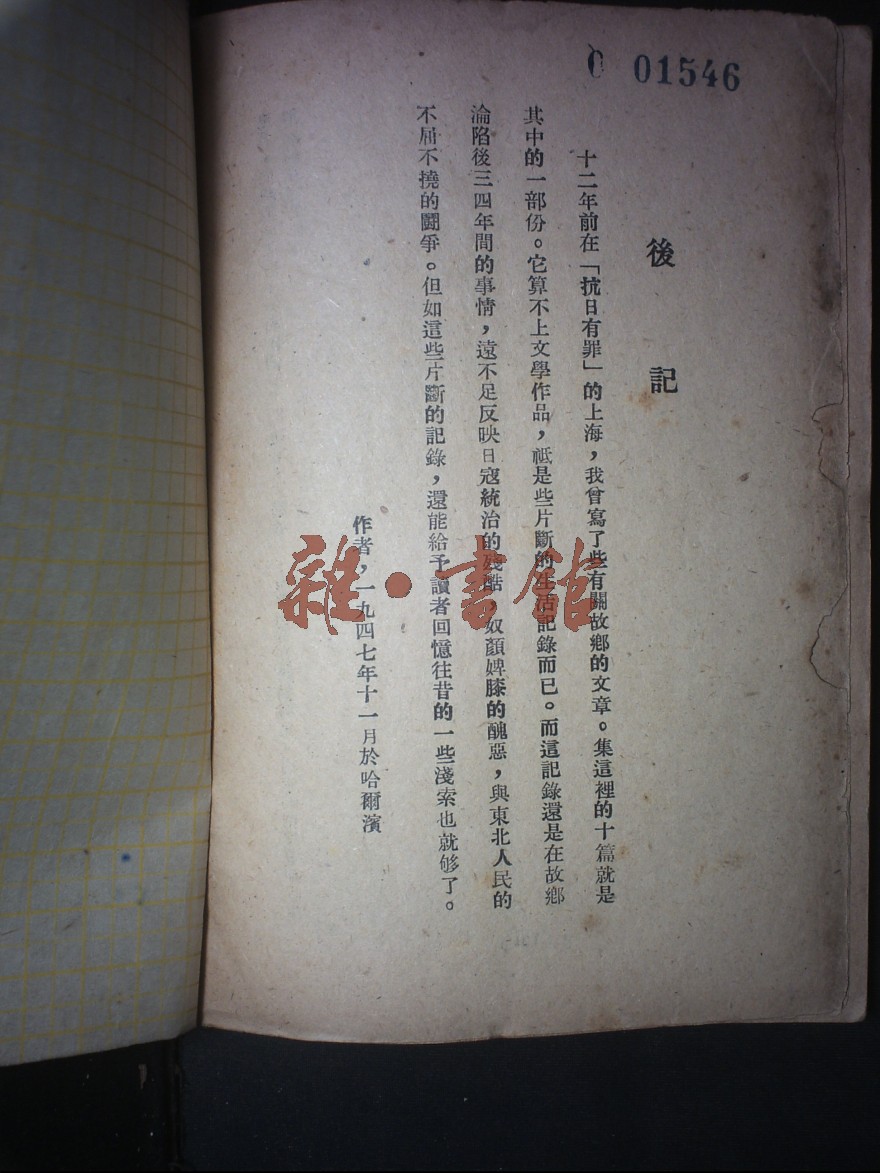 01546
後記
十二年前在「抗日有罪」的上海，我曾寫了些有關故鄉的文章。集這裡的十篇就是
其中的一部份。它算不上文學作品，祗是些片斷的生活記錄而已。而這記錄還是在故鄉
淪陷後三四年間的事情，遠不足反映日寇統治的殘酷，奴顏婢膝的醜惡，與東北人民的
不屈不撓的鬪爭。但如這些片斷的記錄，還能給予讀者回憶往昔的一些淺索也就够了。
作者，一九四七年十一月於哈爾濱
雜·書館